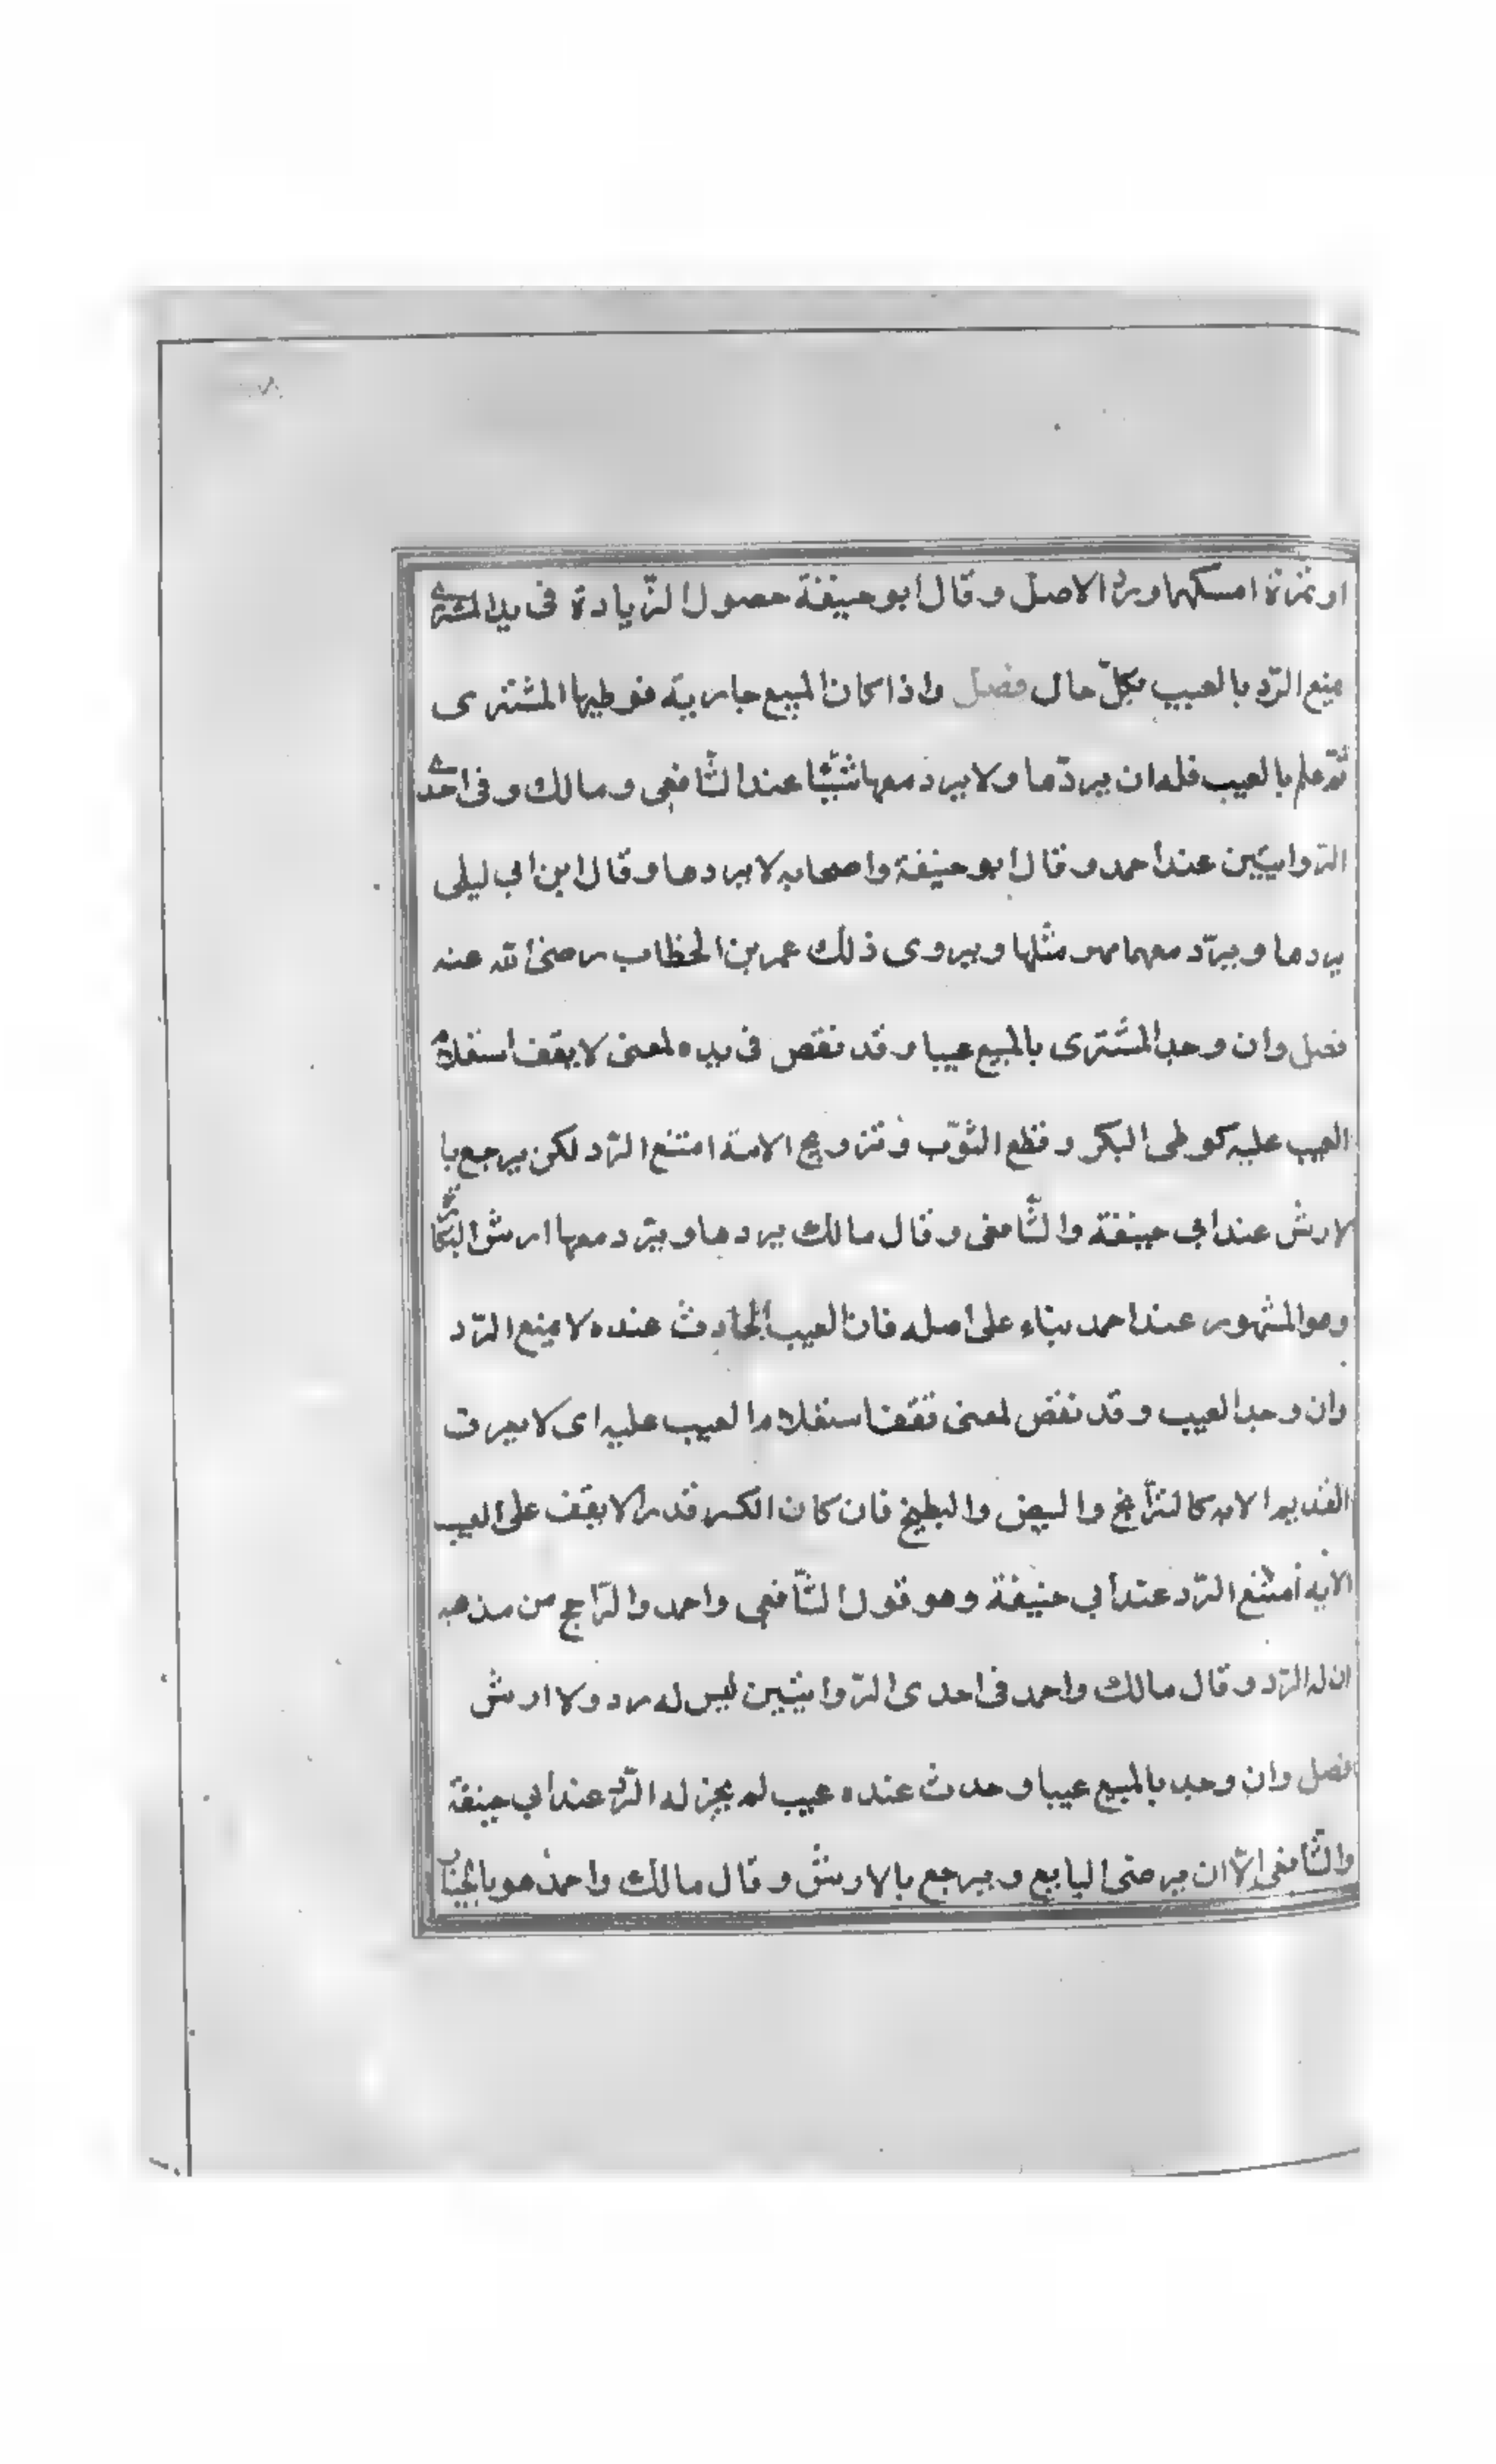 او ثمرة امسكها ورد الاصل وقال ابو حنيفة حصول الزّيادة فى يد المشترى
يمنع الرّد بالعيب بكلّ حال فصل واذا كان المبيع جارية فوطيها المشترى
ثمّ علم بالعيب فله ان يردّها ولا يرد معها شيئًا عند الشّافعى ومالك وفى احدى
الرّوايتين عند احمد وقال ابو حنيفة واصحابه لا يردها وقال ابن ابى ليلى
يردها ويردّ معها مهر مثلها ويروى ذلك عمر بن الخطاب رضى الله عنه
فصل وان وجد المشترى بالمبيع عيبا وقد نقص فى يده لمعنى لا يقف استعلام
العيب عليه كوطى البكر وقطع الثّوب وتزويج الامة امتنع الرّد لكن يرجع با
لارش عند ابى حنيفة والشّافعى وقال مالك يردها ويردّ معها ارش البكارة
وهو المشهور عند احمد بناء على اصله فان العيب الحادث عنده لا يمنع الرّد
وان وجد العيب وقد نقص لمعنى تقف استعلام العيب عليه اى لا يعرف
القديم الا به كالترانج والبيض والبطيخ فان كان الكسر قدرا لا يقف على العيب
الا به امتنع الرّد عند ابى حنيفة وهو قول الشّافعى واحمد والرّاجح من مذهبه
ان له الرّد وقال مالك واحمد فى احدى الرّوايتين ليس له رد ولا ارش
فصل وان وجد بالمبيع عيبا وحدث عنده عيب لم يجز له الرّد عند ابى حنيفة
والشّافعى الّا ان يرضى البايع ويرجع بالارش وقال مالك واحمد هو بالخيار